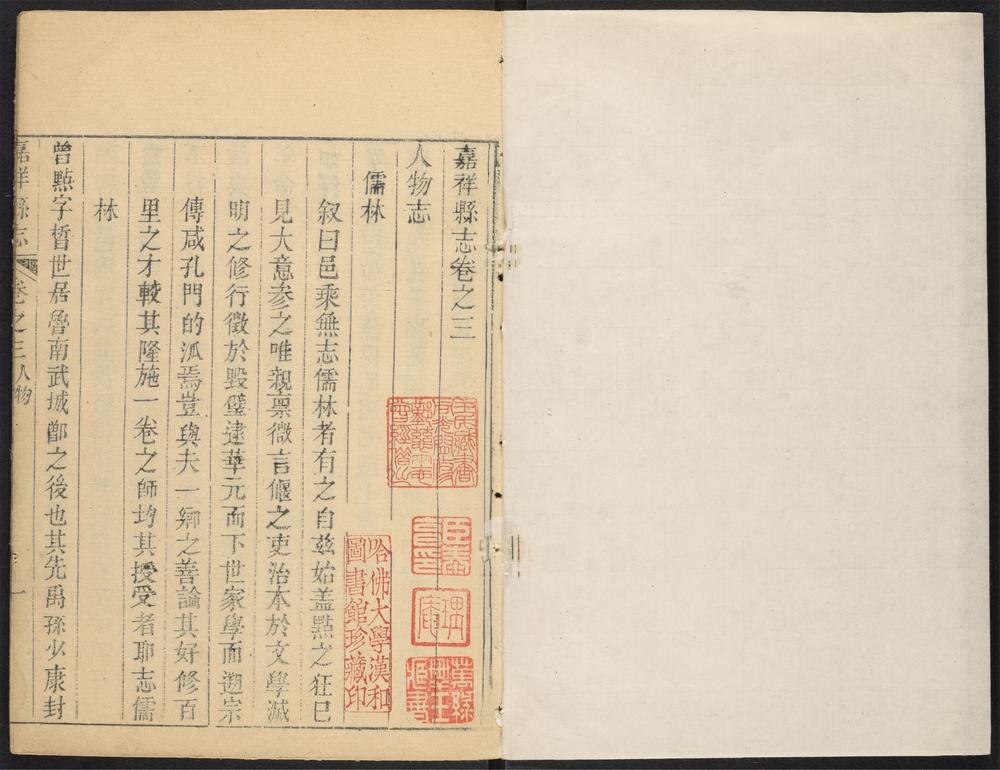 嘉祥縣志卷之三
人物志
儒林
叙曰邑乘無志儒林者有之自茲始盖點之狂已
見大意参之唯親禀微言偃之吏治本於文學滅
明之修行徵於毀璧逮華元而下世家學而遡宗
傳咸孔門的派焉豈與夫一鄉之善論其好修百
里之才較其隆施一卷之師均其授受者耶志儒
林
曾㸃字晳世居魯南武城鄫之後也其先禹孫少康封
嘉祥縣志
卷之三人物
一
哈佛大學漢和
圖書館珍藏印